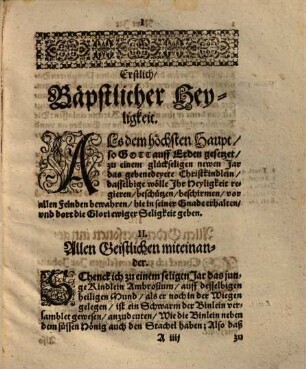 1
Erstlich/
Bäpstlicher Hey-
ligkeit.
ALs dem höchsten Haupt/
so GOTT auff Erden gesetzet/
zu einem glückseligen newen Jar
das gebenedeyete Christkindlein/
dasselbige wölle Ihr Heyligkeit re-
gieren/ beschützen/ beschirmen/ vor
allen Feinden bewahren/ hie in seiner Gnade erhalten/
und dort die Glori ewiger Seligkeit geben.
II.
Allen Geistlichen miteinan-
der.
SChenck ich zu einem seligen Jar das jun-
ge Kindlein Ambrosium/ auff desselbigen
heiligen Mund/ als er noch in der Wiegen
gelegen/ ist ein Schwarm der Binlein ver-
samblet gewesen/ anzudeuten/ Wie die Binlein neben
dem süssen Hönig auch den Stachel haben; Also daß
A iiij zu